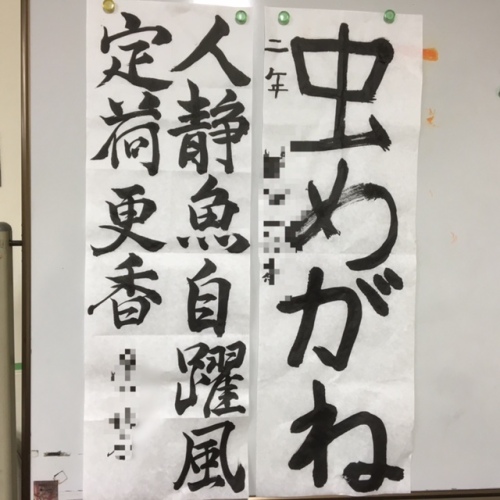 虫めがね
二年
人静魚自躍風
定荷更香